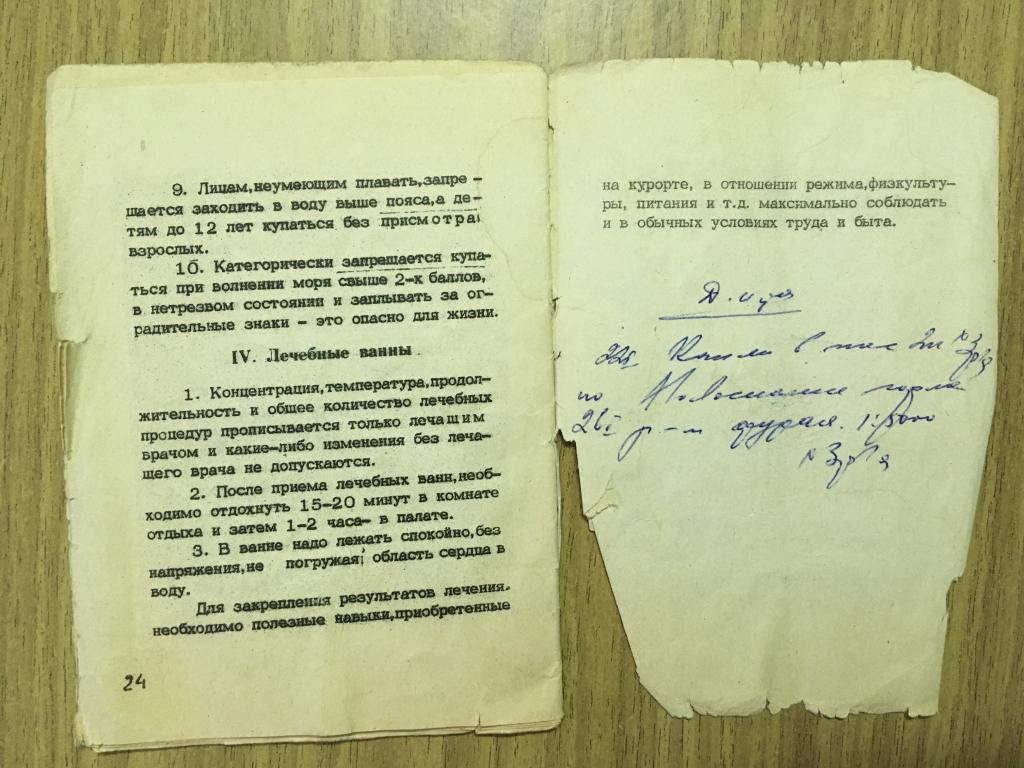 9. Лицам,неумеющим плавать,запре-
щается заходить в воду выше пояса,а де-
тям до 12 лет купаться без присмотра
взрослых.
10. Категорически запрещается купа-
ться при волнении моря свыше 2-х баллов,
в нетрезвом состоянии и заплывать за ог-
радительные знаки - это опасно для жизни.
IV. Лечебные ванны.
1. Концентрация,температура,продол-
жительность и общее количество лечебных
процедур прописывается только лечащим
врачом и какие-либо изменения без леча-
щего врача не допускаются.
2. После приема лечебных ванн,необ-
ходимо отдохнуть 15-20 минут в комнате
отдыха и затем 1-2 часа- в палате.
3. В ванне надо лежать спокойно,без
напряжения,не погружая область сердца в
воду.
Для закрепления результатов лечения
необходимо полезные навыки,приобретенные
24
на курорте, в отношении режима,физкульту-
ры, питания и т.д. максимально соблюдать
и в обычных условиях труда и быта.
Капли в нос
по
р-м фурац. 1:5000